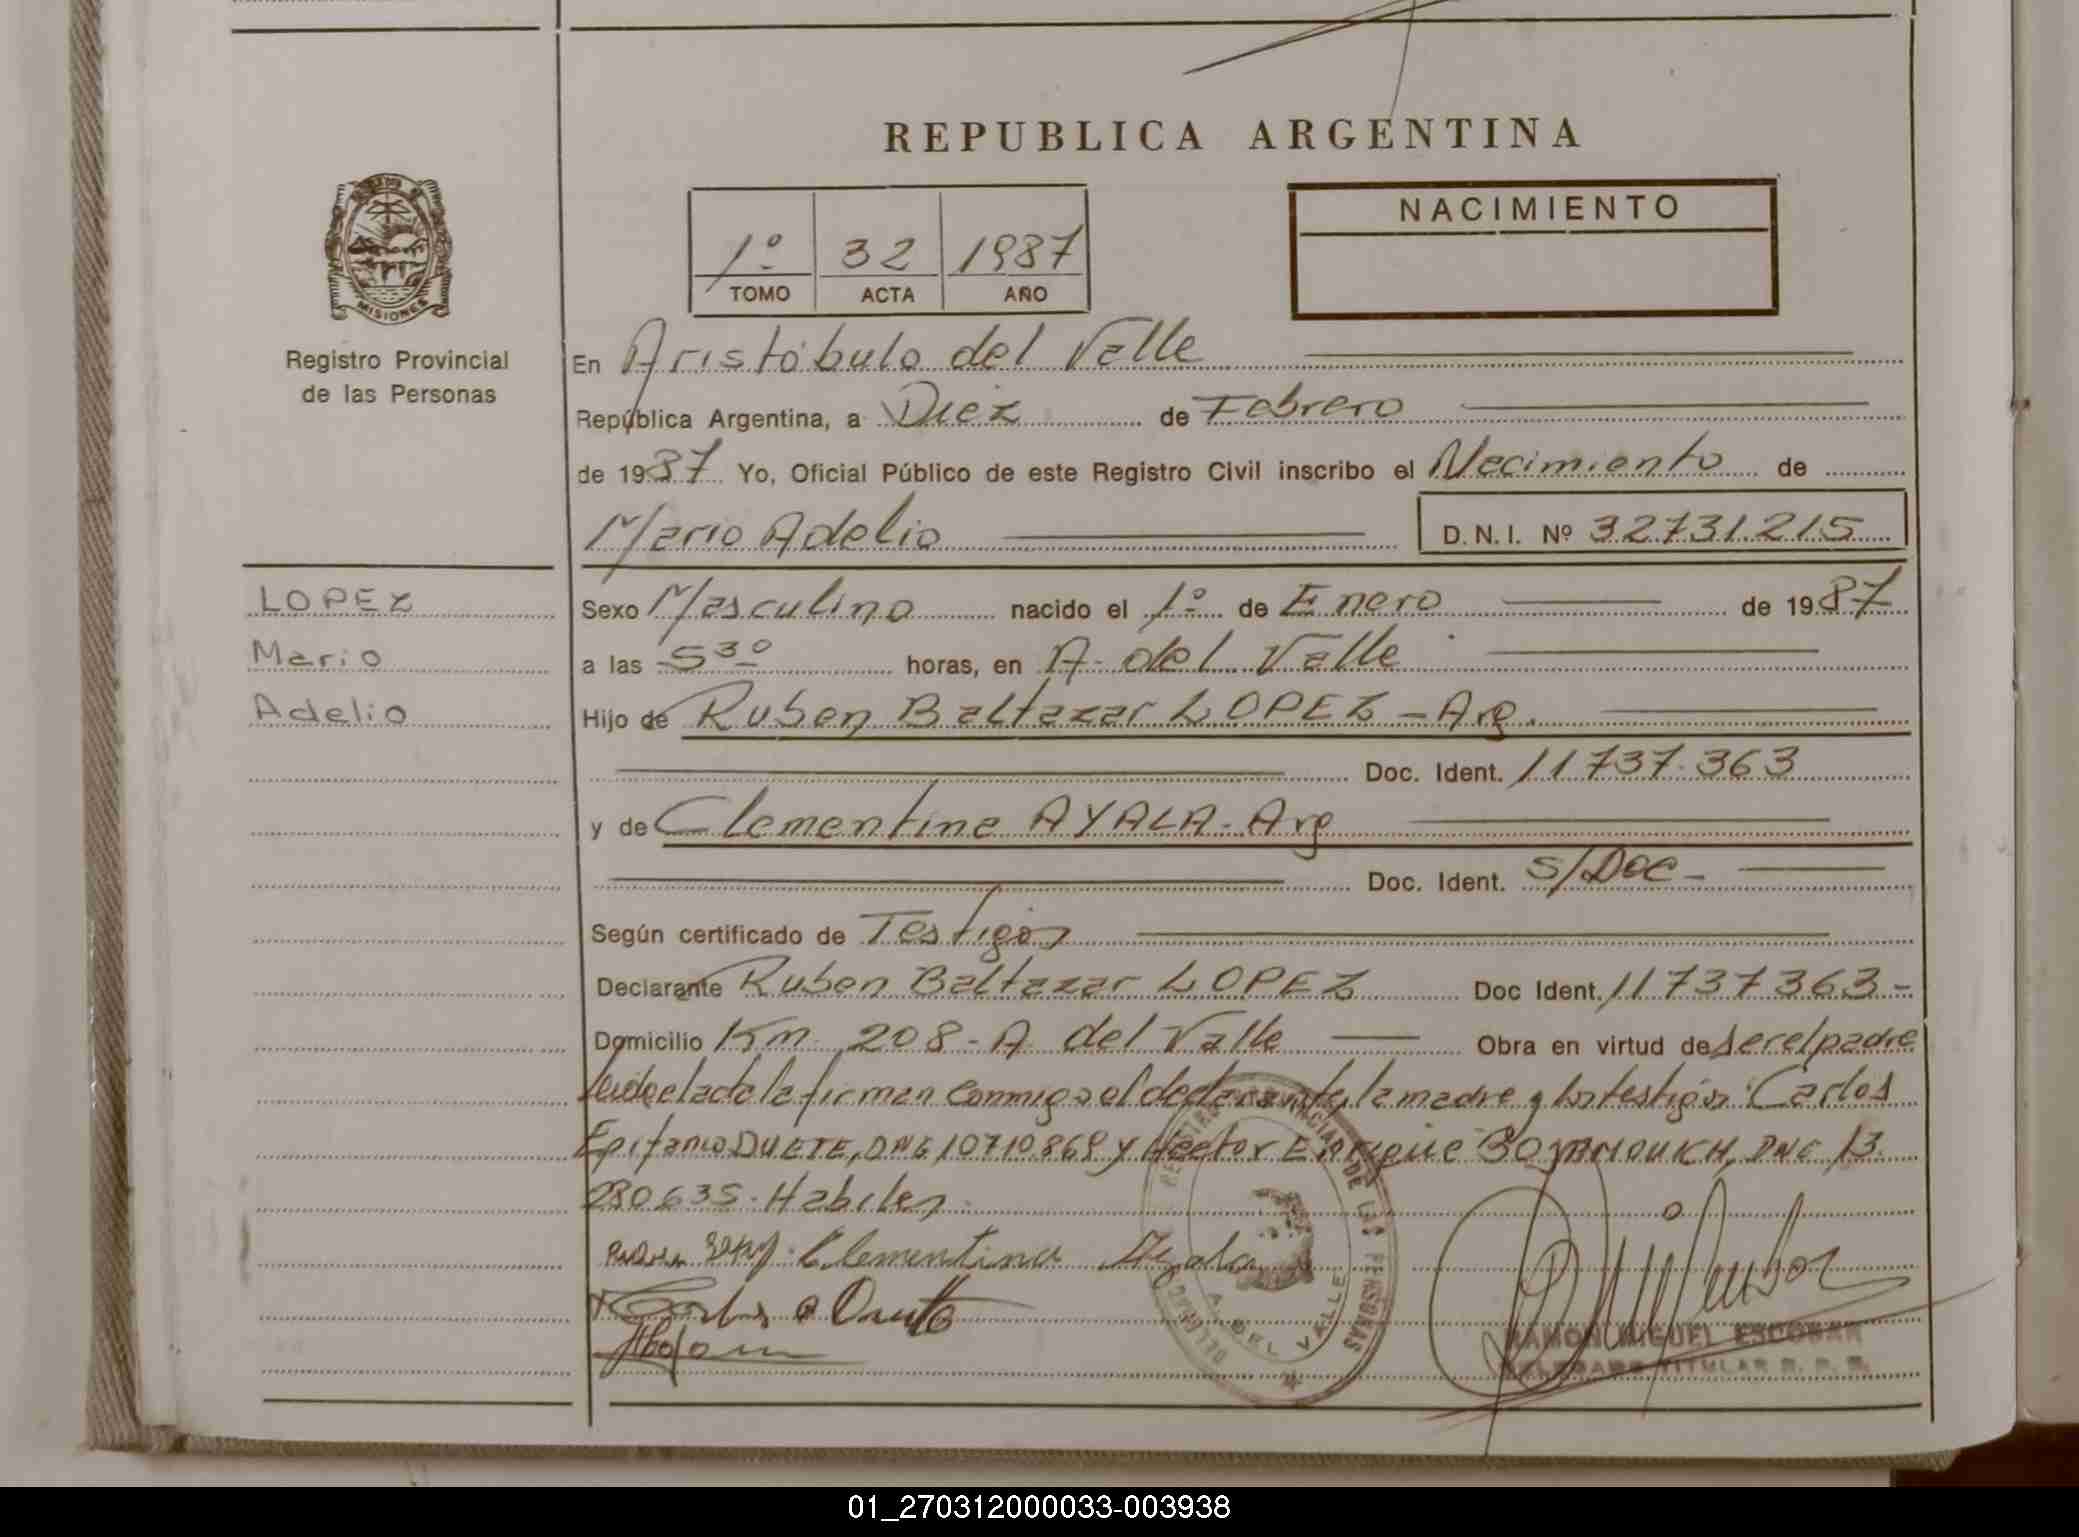 REPUBLICA ARGENTINA
NACIMIENTO
1º 32 1987
TOMO ACTA AÑO
MISIONES
Registro Provincial
de las Personas
En Aristóbulo del Valle
República Argentina, a Diez de Febrero
de 1987 Yo, Oficial Público de este Registro Civil inscribo el Nacimiento de
Mario Adelio D.N.I. Nº 32731215
LOPEZ
Mario
Adelio
Sexo Masculino nacido el 1º de Enero de 1987
a las 5 30 horas, en A. del Valle
Hijo de Ruben Baltazar LOPEZ - Arg.
Doc. Ident. 11737.363
y de Clementina AYALA - Arg
Doc. Ident. S/Doc -
Según certificado de Testigos
Declarante Ruben Baltazar LOPEZ Doc Ident. 11737363 -
Domicilio Km 208 - A del Valle Obra en virtud de ser el padre
leido el acta la firman conmigo el declarante, la madre y los testigos: Carlos
Epifanio DUETE, DNI 10710868 y Hector Enrique BOJANOVICH, DNI 13.
280635. Habiles.
Clementina Ayala
REGISTRO PROVINCIAL DE LAS PERSONAS
A. DEL VALLE
RAMON MIGUEL ESCOBAR
DELEGADO TITULAR R. P. P.
01_270312000033-003938